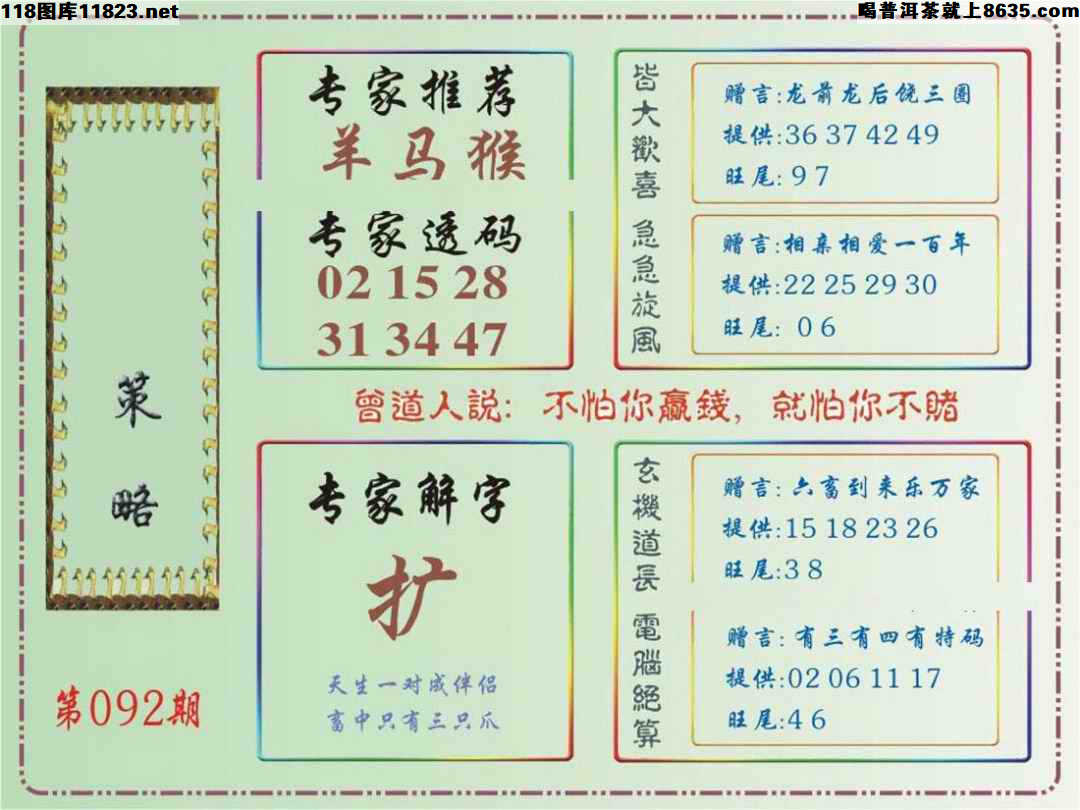 118图库11823.net
喝普洱茶就上8635.com
策
略
第092期
专家推荐
羊马猴
专家透码
02 15 28
31 34 47
皆大歡喜
赠言:龙前龙后饶三圈
提供:36 37 42 49
旺尾:9 7
急急旋風
赠言:相亲相爱一百年
提供:22 25 29 30
旺尾: 0 6
曾道人説: 不怕你贏錢, 就怕你不賭
专家解字
扩
天生一对成伴侣
畜中只有三只爪
玄機道長
赠言: 六畜到来乐万家
提供:15 18 23 26
旺尾:3 8
電腦絕算
赠言: 有三有四有特码
提供:02 06 11 17
旺尾:4 6